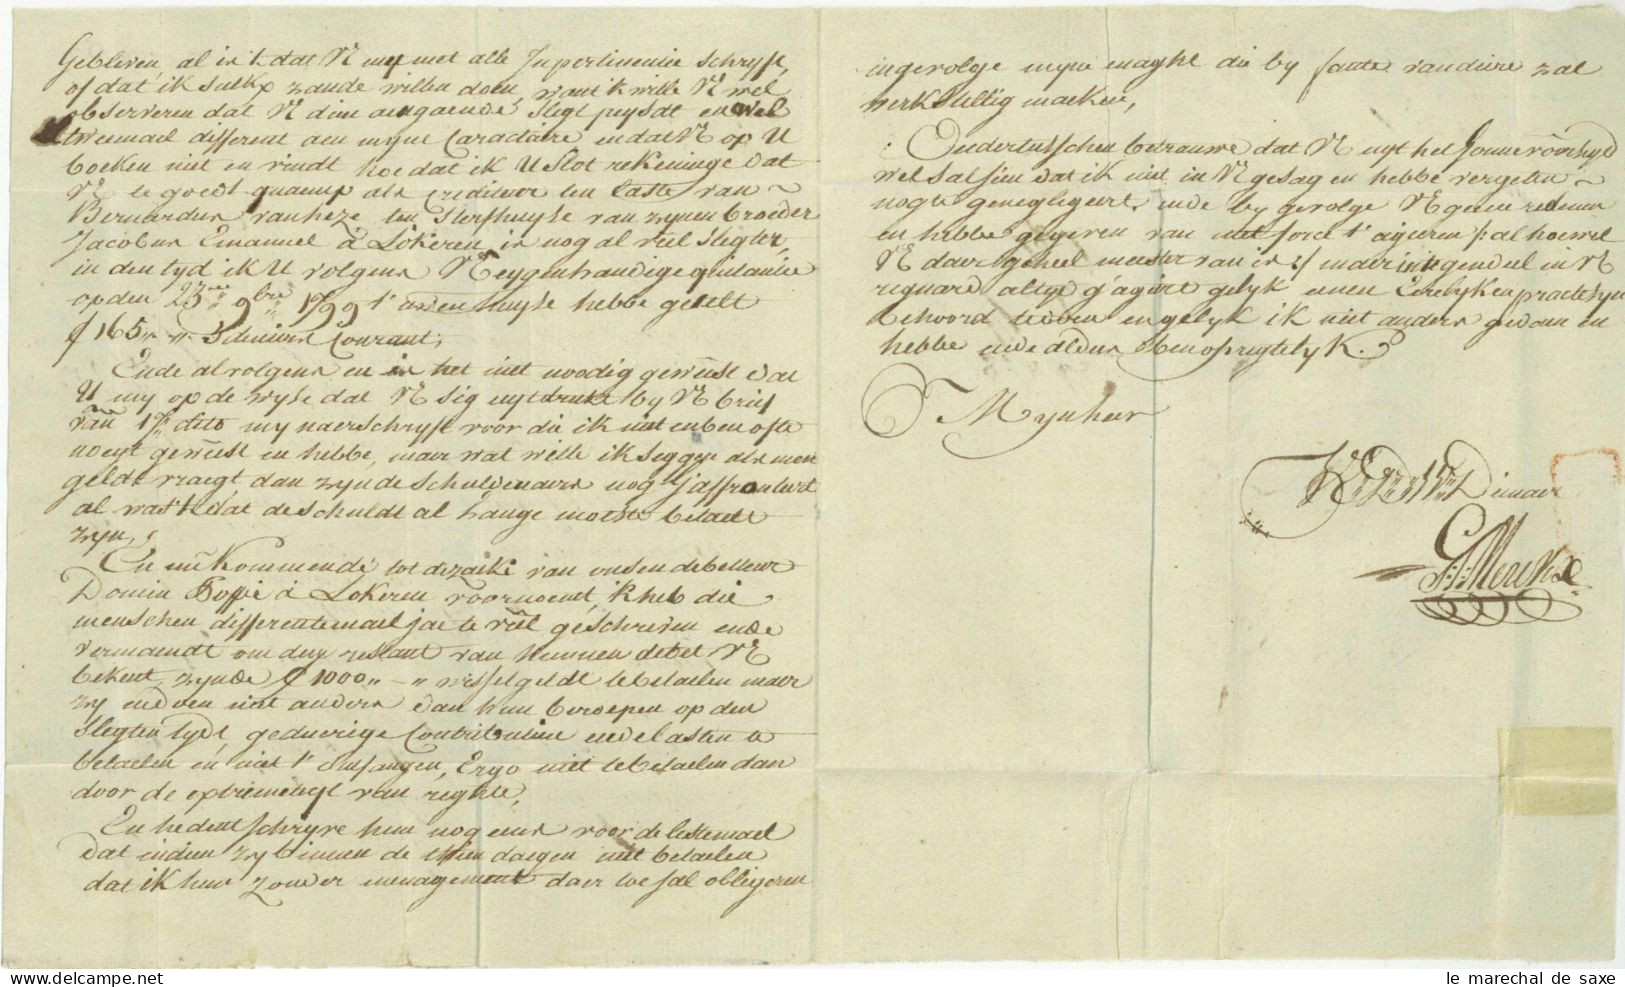 Gebleven, al is't dat VE my met alle Jnpertinentie schryft,
of dat ik sulkx zoude willen doen, want ik wille VE wel
observeren dat VE dien aengaende slegt peysdt en wel
tweemael different aen myne Caractaire en dat VE op U
boeken niet en vindt hoe dat ik U slot rekeninge dat
VE te goedt quaemp als crediteur ten laste van
Bernardus van heze ten sterfhuyse van zynen broeder
Jacobus Emanuel à Lokeren, is nog al veel slegter,
in den tyd ik U volgens VE eygenhandige quitantie
op den 23me 9bre 1799 t' uwen huyse hebbe getelt
£ 165 " " stuivers Courant;
Ende alvolgens en is het niet noodig geweest dat
U my op de wyse dat VE sig uytdrukt by VE brief
van 17 dito my naerschryft voor die ik niet en ben ofte
noeyt geweest en hebbe, maer wat wille ik seggen als men
geldt vraegt dan zyn de schuldenaers nog g'affronteert
al was't dat de schuldt al lange moeste betaelt
zyn,
En nu kommende tot de zaeke van onsen debiteur
Domin Poppe à Lokeren voornoemt, ik heb die
menschen differentemael jae te veel geschreven ende
vermaendt om den restant van hunnen debet VE
bekent, zynde £ 1000 " - " wisselgeldt te betaelen maer
zy en doen niet anders dan hun beroepen op den
slegten tydt, geduerige Contributien ende lasten te
betaelen en niet t' ontfangen, Ergo niet te betaelen dan
door de extremiteyt van regte,
En heden schryve hun nog eens voor de lestemael
dat indien zy binnen de thien daegen niet betaelen
dat ik hun zonder menagement daer toe sal obligeren
ingevolge myne maght die by faute van diere zal
werkstellig maeken,
Ondertusschen betrouwe dat VE uyt het hier voorseyd
wel sal sien dat ik niet in VE gesag en hebbe vergeten
nogte genegligeert, ende by gevolge VE geene redenen
en hebbe gegeven van met force t' ageren /: al hoewel
VE daer geheel meester van is :/ maer integendeel in VE
reguard altyt g'agiert gelyk eenen Eerelyken practisyn
behoord te doen en gelyk ik niet anders gedaen en
hebbe ende aldus ben opregtelyk.
Mynheer
VE D: W: Dinaer
J: J: Merckx
le marechal de saxe